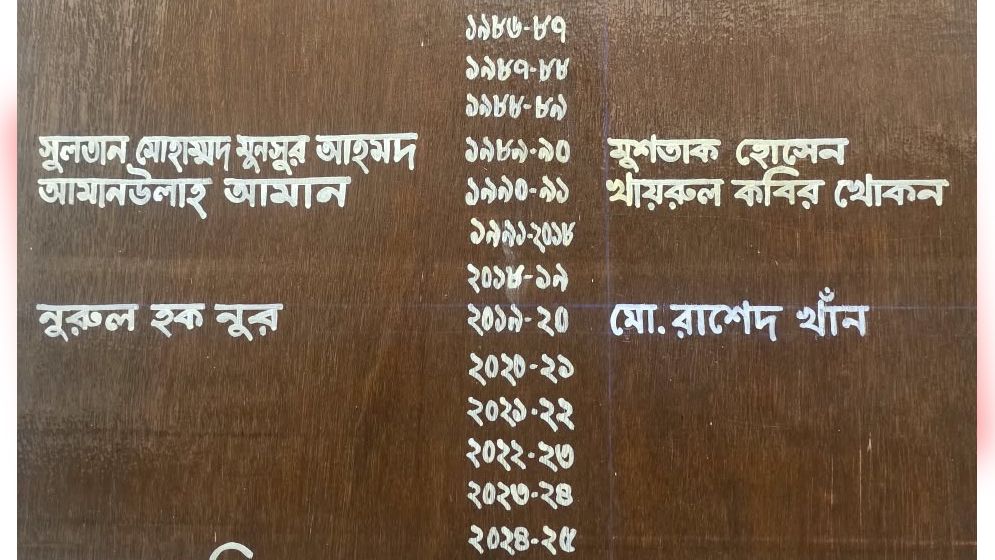 ১৯৮৬-৮৭
১৯৮৭-৮৮
১৯৮৮-৮৯
সুলতান মোহাম্মদ মুনসুর আহমদ ১৯৮৯-৯০ মুশতাক হোসেন
আমানউলাহ আমান ১৯৯০-৯১ খায়রুল কবির খোকন
১৯৯১-২০১৮
২০১৮-১৯
নুরুল হক নুর ২০১৯-২০ মো. রাশেদ খাঁন
২০২০-২১
২০২১-২২
২০২২-২৩
২০২৩-২৪
২০২৪-২৫